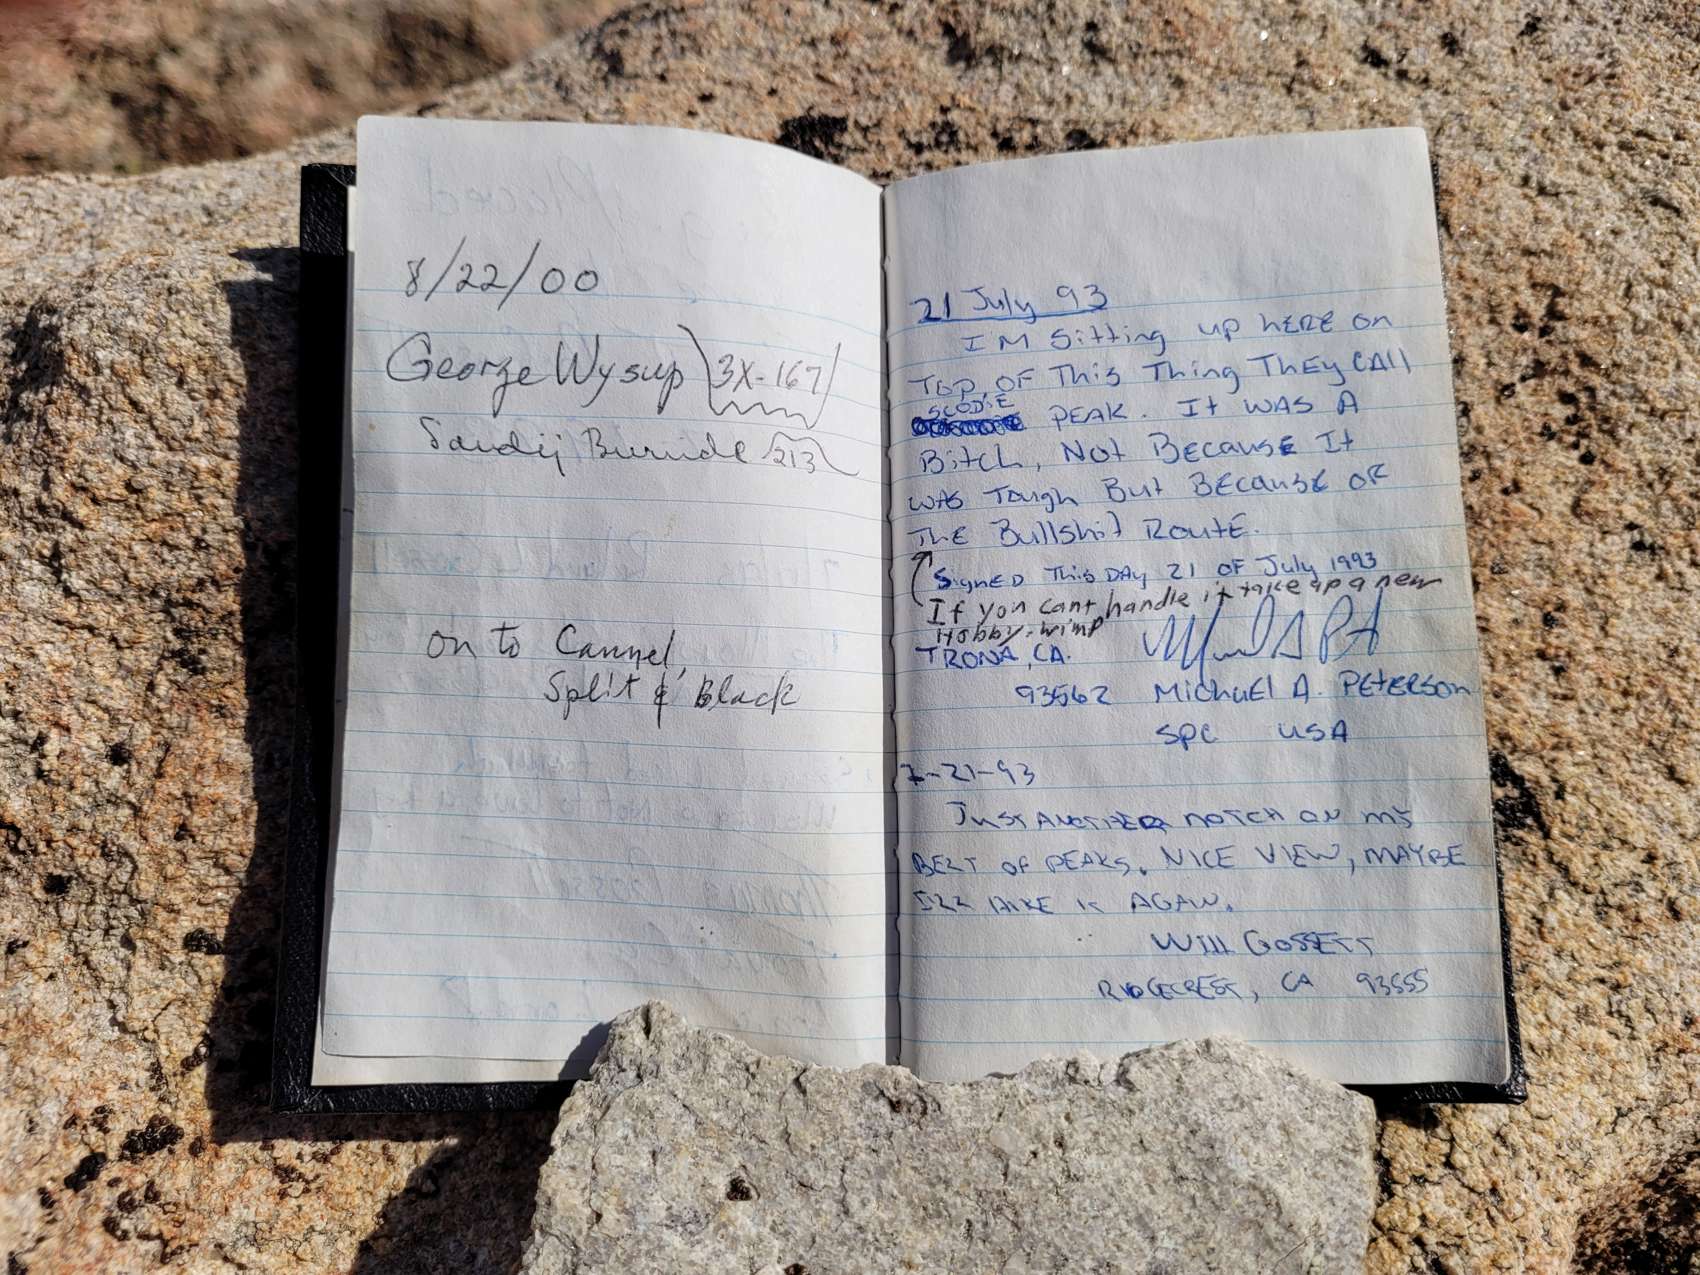 8/22/00
George Wysup 3X-167
Sandy Burnside 213
on to Cannel,
Split & Black
21 July 93
I'M Sitting up HERE on
TOP OF THis Thing THEy CAll
SCODIE
PEAK. It WAS A
Bitch, Not BECAUSE It
WAS Tough But BECAUSE OF
THE Bullshit ROUTE.
SignED THis DAy 21 OF July 1993
If you cant handle it take up a new
Hobby-wimp
TRONA, CA.
93562 MicHAEl A. PETERSON
SPC USA
7-21-93
JUST ANOTHER NOTCH ON MY
BELT OF PEAKS. NICE VIEW, MAYBE
I'LL HIKE IT AGAIN.
WILL GOSSETT
RIDGECREST, CA 93555